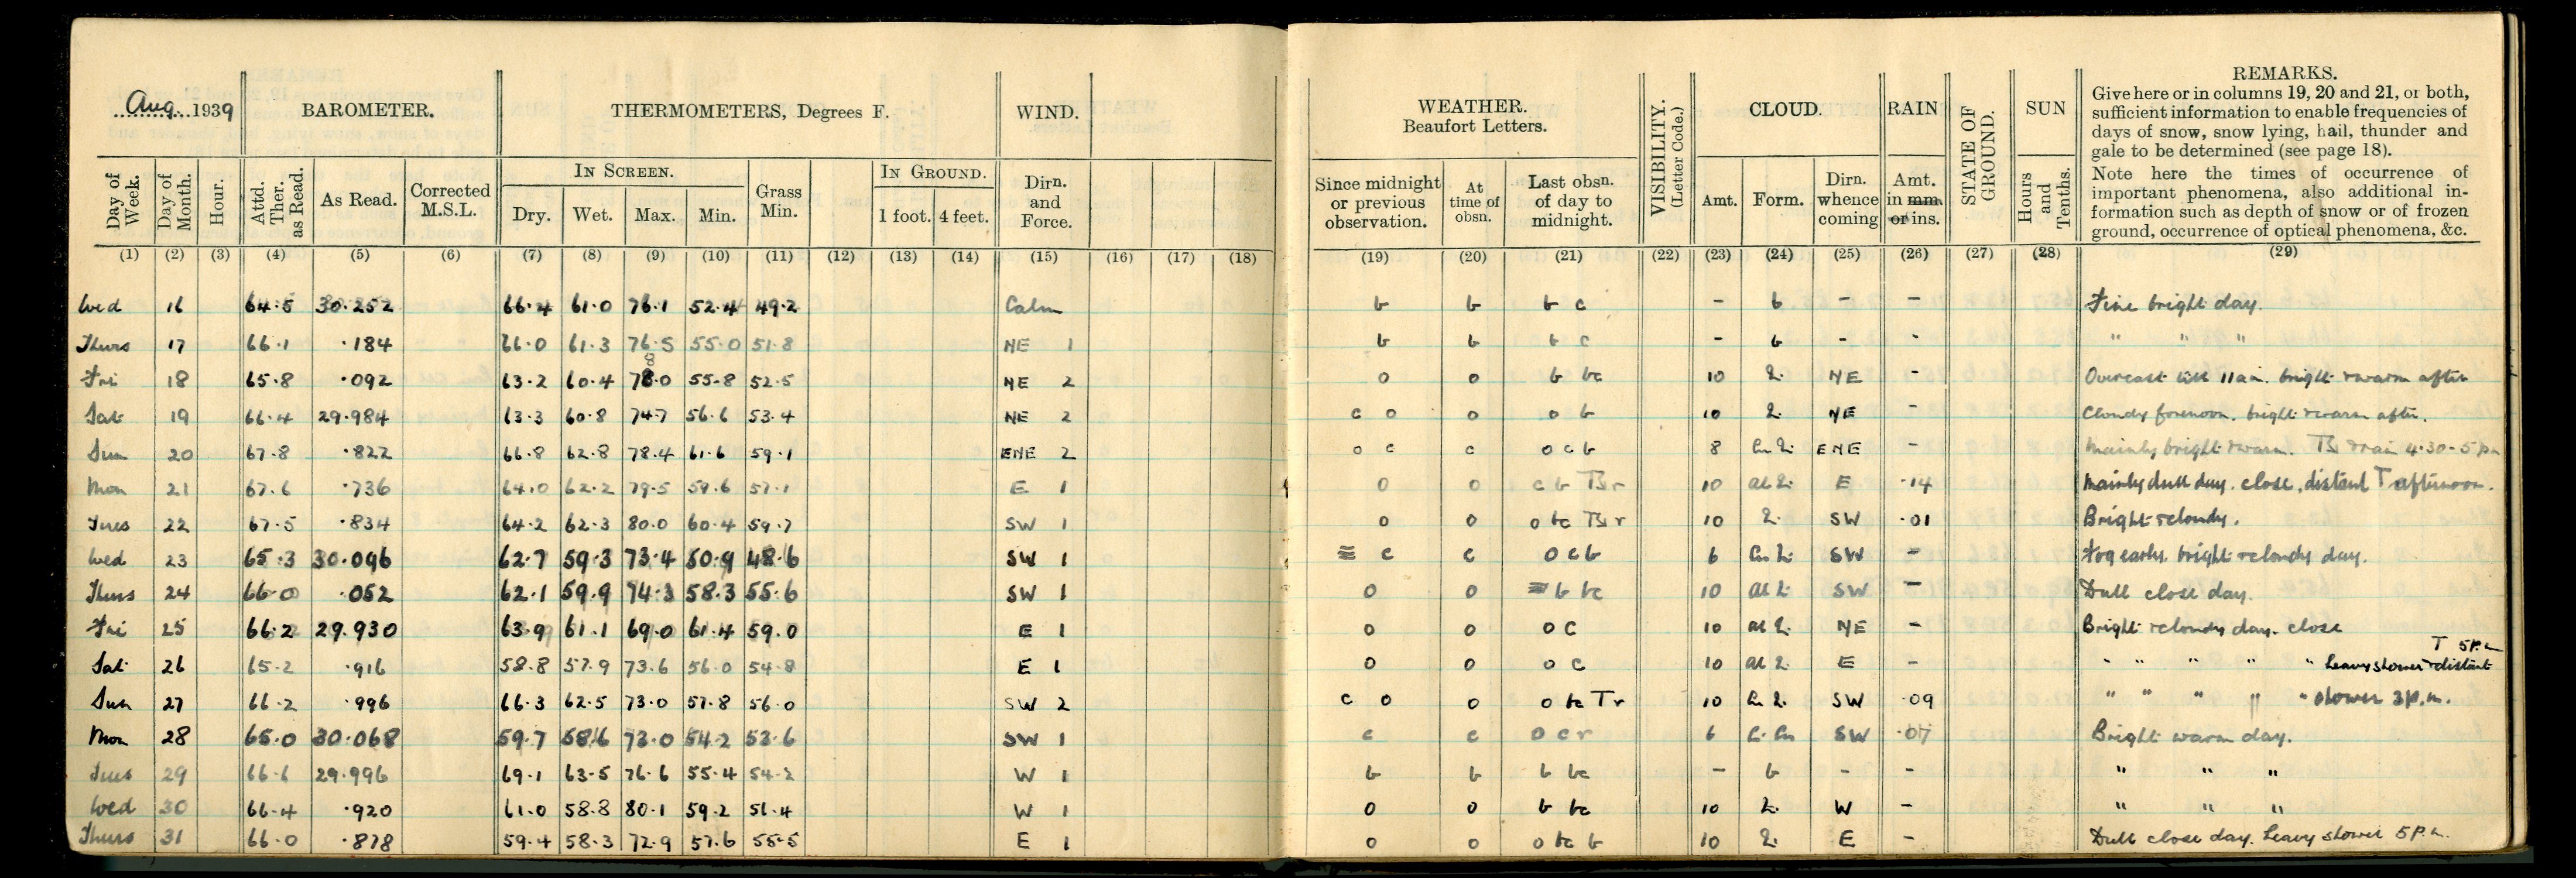 Aug. 1939
BAROMETER.
THERMOMETERS, Degrees F.
WIND.
WEATHER.
Beaufort Letters.
VISIBILITY.
(Letter Code.)
CLOUD.
RAIN
STATE OF
GROUND.
SUN
REMARKS.
Give here or in columns 19, 20 and 21, or both,
sufficient information to enable frequencies of
days of snow, snow lying, hail, thunder and
gale to be determined (see page 18).
Note here the times of occurrence of
important phenomena, also additional in-
formation such as depth of snow or of frozen
ground, occurrence of optical phenomena, &c.
Day of
Week.
Day of
Month.
Hour.
Attd.
Ther.
as Read.
As Read.
Corrected
M.S.L.
IN SCREEN.
Dry. Wet. Max. Min.
Grass
Min.
IN GROUND.
1 foot. 4 feet.
Dirn.
and
Force.
Since midnight
or previous
observation.
At
time of
obsn.
Last obsn.
of day to
midnight.
Amt. Form.
Dirn.
whence
coming
Amt.
in mm.
or ins.
Hours
and
Tenths.
(1) (2) (3) (4) (5) (6) (7) (8) (9) (10) (11) (12) (13) (14) (15) (16) (17) (18) (19) (20) (21) (22) (23) (24) (25) (26) (27) (28) (29)
Wed 16 64.5 30.252 66.4 61.0 76.1 52.4 49.2 Calm b b b c - b - - Fine bright day.
Thurs 17 66.1 .184 66.0 61.3 76.5 55.0 51.8 NE 1 b b b c - b - - " " "
Fri 18 65.8 .092 63.2 60.4 78.0 55.8 52.5 NE 2 o o b bc 10 NE - Overcast till 11am. bright & warm after
Sat 19 66.4 29.984 63.3 60.8 74.7 56.6 53.4 NE 2 c o o o b 10 NE - Cloudy forenoon. bright & warm after.
Sun 20 67.8 .822 66.8 62.8 78.4 61.6 59.1 ENE 2 o c c o c b 8 ENE - Mainly bright & warm. & rain 4.30-5pm
Mon 21 67.6 .736 64.0 62.2 79.5 59.6 57.1 E 1 o o c b 10 E .14 Mainly dull day. close, distant T afternoon.
Tues 22 67.5 .834 64.2 62.3 80.0 60.4 59.7 SW 1 o o o bc 10 SW .01 Bright & cloudy.
Wed 23 65.3 30.096 62.7 59.3 73.4 50.9 48.6 SW 1 ≡ c c o c b 6 SW - Fog early. bright & cloudy day.
Thurs 24 66.0 .052 62.1 59.9 74.3 58.3 55.6 SW 1 o o ≡ b bc 10 SW - Dull close day.
Fri 25 66.2 29.930 63.9 61.1 69.0 61.4 59.0 E 1 o o o c 10 NE - Bright & cloudy day. close
Sat 26 65.2 .916 58.8 57.9 73.6 56.0 54.8 E 1 o o o c 10 E - " " " " " heavy shower & distant T 5p.m
Sun 27 66.2 .996 66.3 62.5 73.0 57.8 56.0 SW 2 c o o o bc Tr 10 SW .09 " " " " " shower 3p.m.
Mon 28 65.0 30.068 59.7 58.6 73.0 54.2 53.6 SW 1 c c o c r 6 SW .07 Bright warm day.
Tues 29 66.6 29.996 69.1 63.5 76.6 55.4 54.2 W 1 b b b bc - b - - " " "
Wed 30 66.4 .920 61.0 58.8 80.1 59.2 51.4 W 1 o o b bc 10 W - " " "
Thurs 31 66.0 .878 59.4 58.3 72.9 57.6 55.5 E 1 o o o bc b 10 E - Dull close day. heavy shower 5p.m.